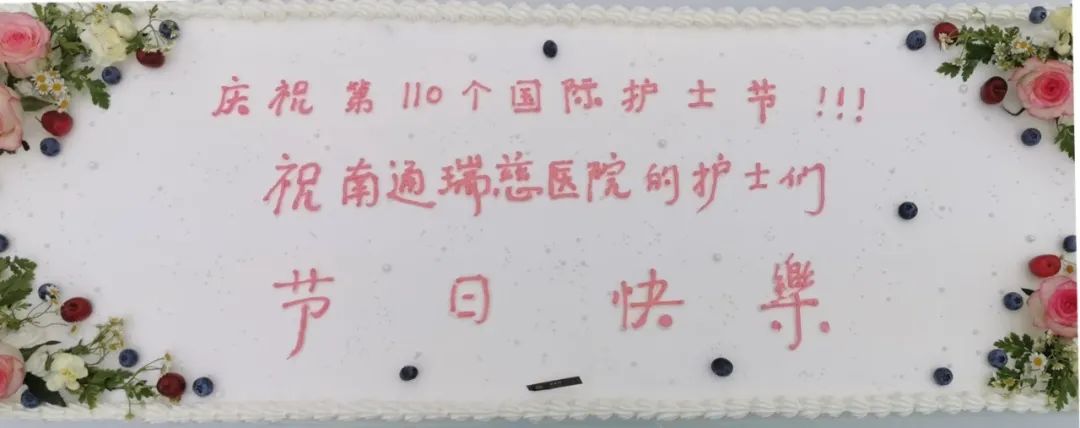 庆祝第110个国际护士节!!!
祝南通瑞慈医院的护士们
节日快樂